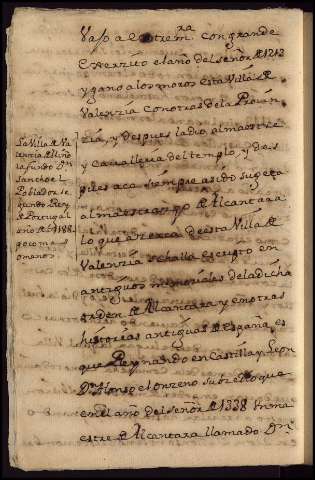 Vaso a Estremra. con grande
exerzito el año del señor de 1212
y gano a los moros esta Villa de
Valenzia con otras de la Provin
zia, y despues la dio al maestre
y cavalleria del templo, y des
pues aca siempre a sido sugeta
al maestrazgo de Alcantara
lo que azerca de esta Villa de
Valenzia se halla escripto en
antiguos memoriales de la dicha
orden de Alcantara y en otras
historias antiguas de España es
que Reynando en Castilla y Leon
Dn. Alonso el onzeno
en el año del señor de 1338 un ma
estre de Alcantara llamado Dn.
La Villa de Va
lenzia de Miño
la fundo Dn.
Sancho el
Poblador se
gundo Rey
de Portugal
año de 1188
poco mas
o menos